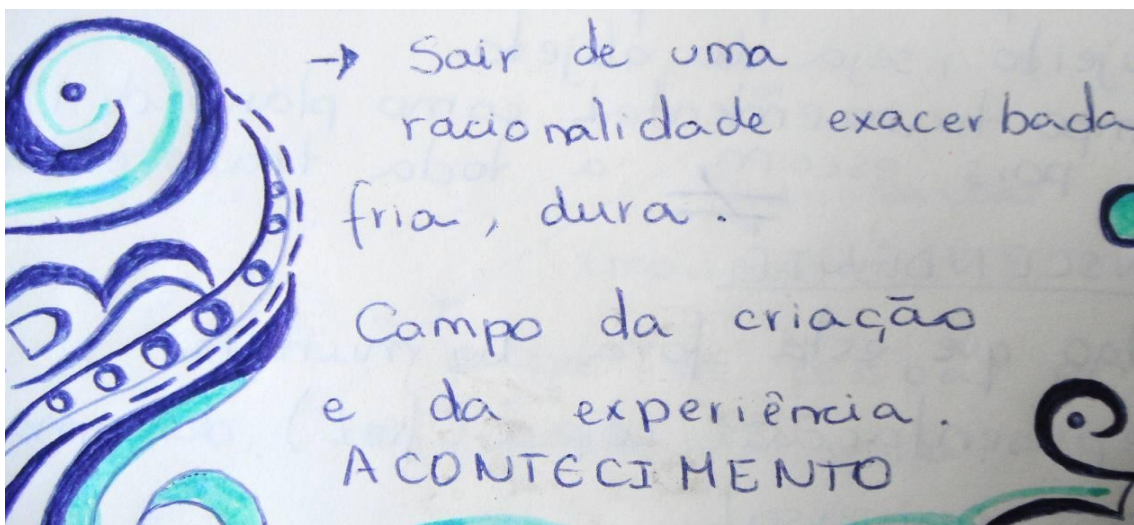 → Sair de uma
racionalidade exacerbada
fria, dura.
Campo da criação
e da experiência.
ACONTECIMENTO